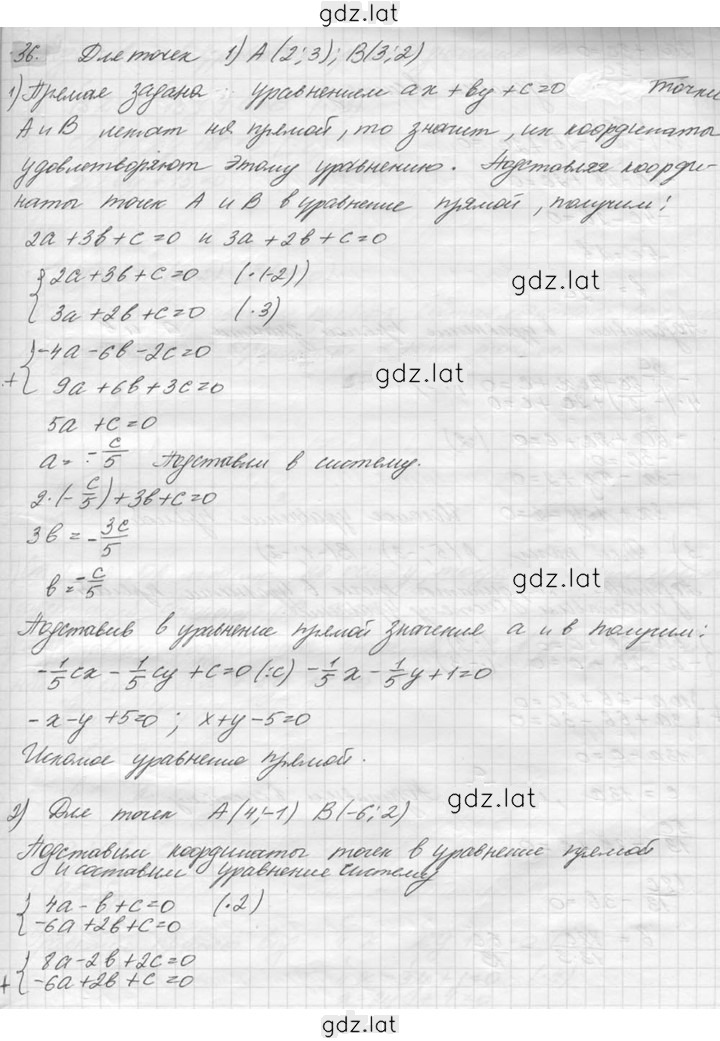 gdz.lat
36. Для точек 1) A(2;3); B(3;2)
1) Прямая задана уравнением ax+by+c=0 Точки
A и B лежат на прямой, то значит, их координаты
удовлетворяют этому уравнению. Подставляя коорди-
наты точек A и B в уравнение прямой, получим:
2a+3b+c=0 и 3a+2b+c=0
2a+3b+c=0 (·(-2))
gdz.lat
3a+2b+c=0 (·3)
-4a-6b-2c=0
+ 9a+6b+3c=0
gdz.lat
5a+c=0
a=-c/5 Подставим в систему.
2·(-c/5)+3b+c=0
3b=-3c/5
b=-c/5
gdz.lat
Подставив в уравнение прямой значения a и b получим:
-1/5cx-1/5cy+c=0 (:c) -1/5x-1/5y+1=0
-x-y+5=0; x+y-5=0
Искомое уравнение прямой.
gdz.lat
2) Для точек A(4;-1) B(-6;2)
Подставим координаты точек в уравнение прямой
и составим уравнение систему
4a-b+c=0 (·2)
-6a+2b+c=0
8a-2b+2c=0
+ -6a+2b+c=0
gdz.lat